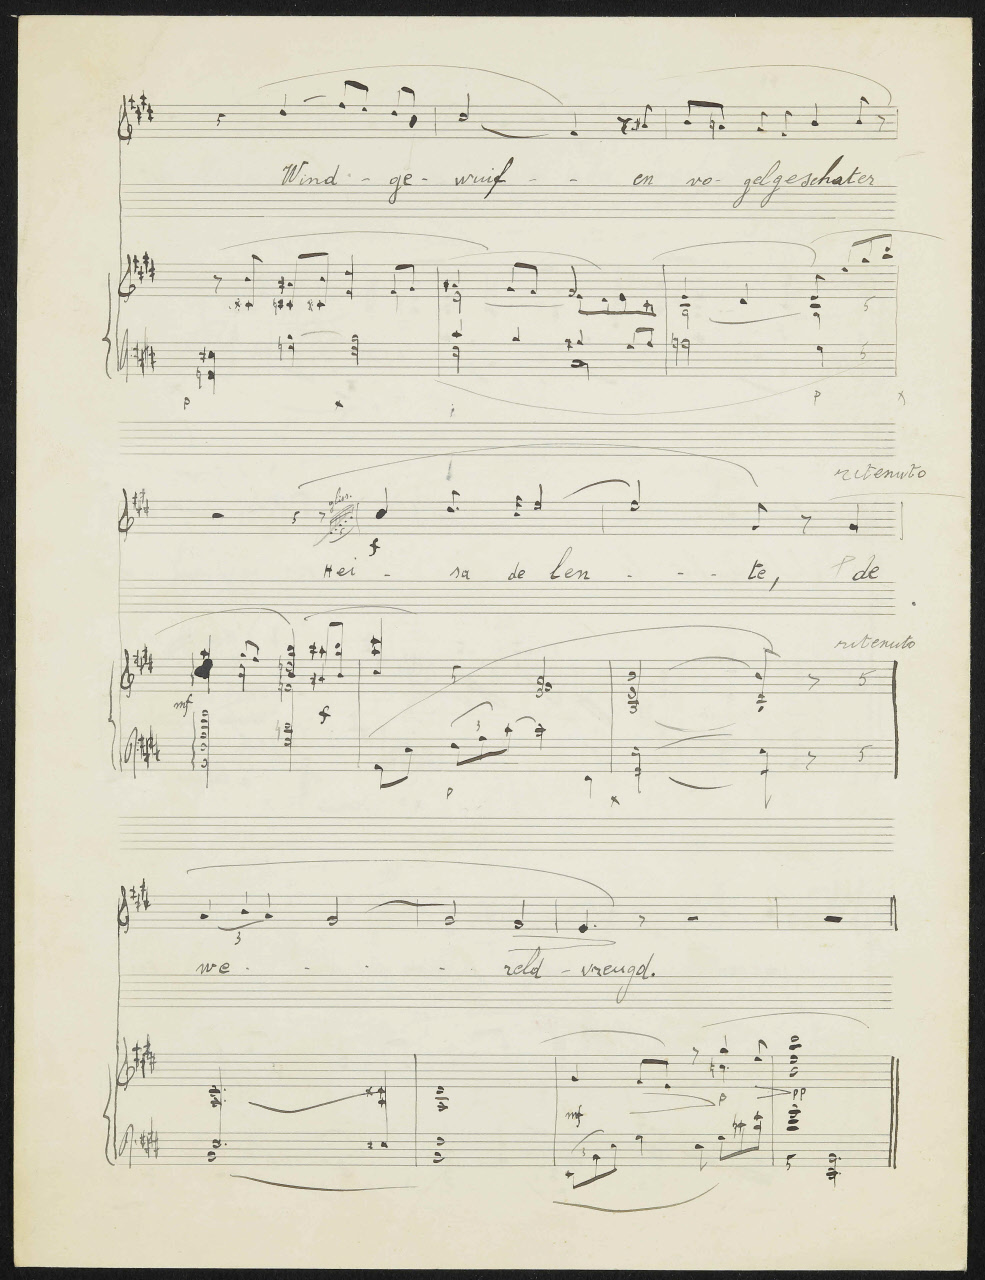 Wind - ge - wuif - - en vo - gelgeschater
P * P *
ritenuto
gliss.
f
Hei - sa de len - - - te, P de
ritenuto
mf f
3
P *
3
we - - - - reld - vreugd.
mf P pp
3